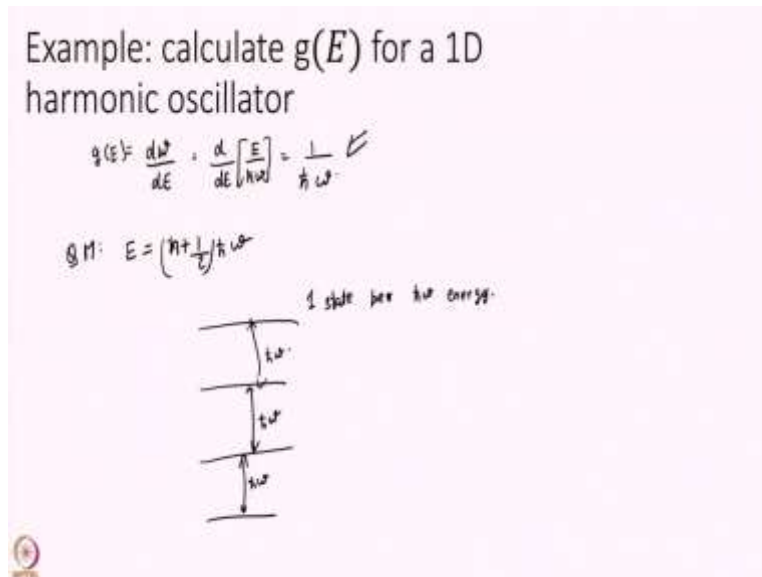 Example: calculate g(E) for a 1D
harmonic oscillator
g(E) = dW/dE = d/dE [E/ħω] = 1/ħω
QM: E = (n+1/2)ħω
1 state per ħω energy.
ħω.
ħω
ħω